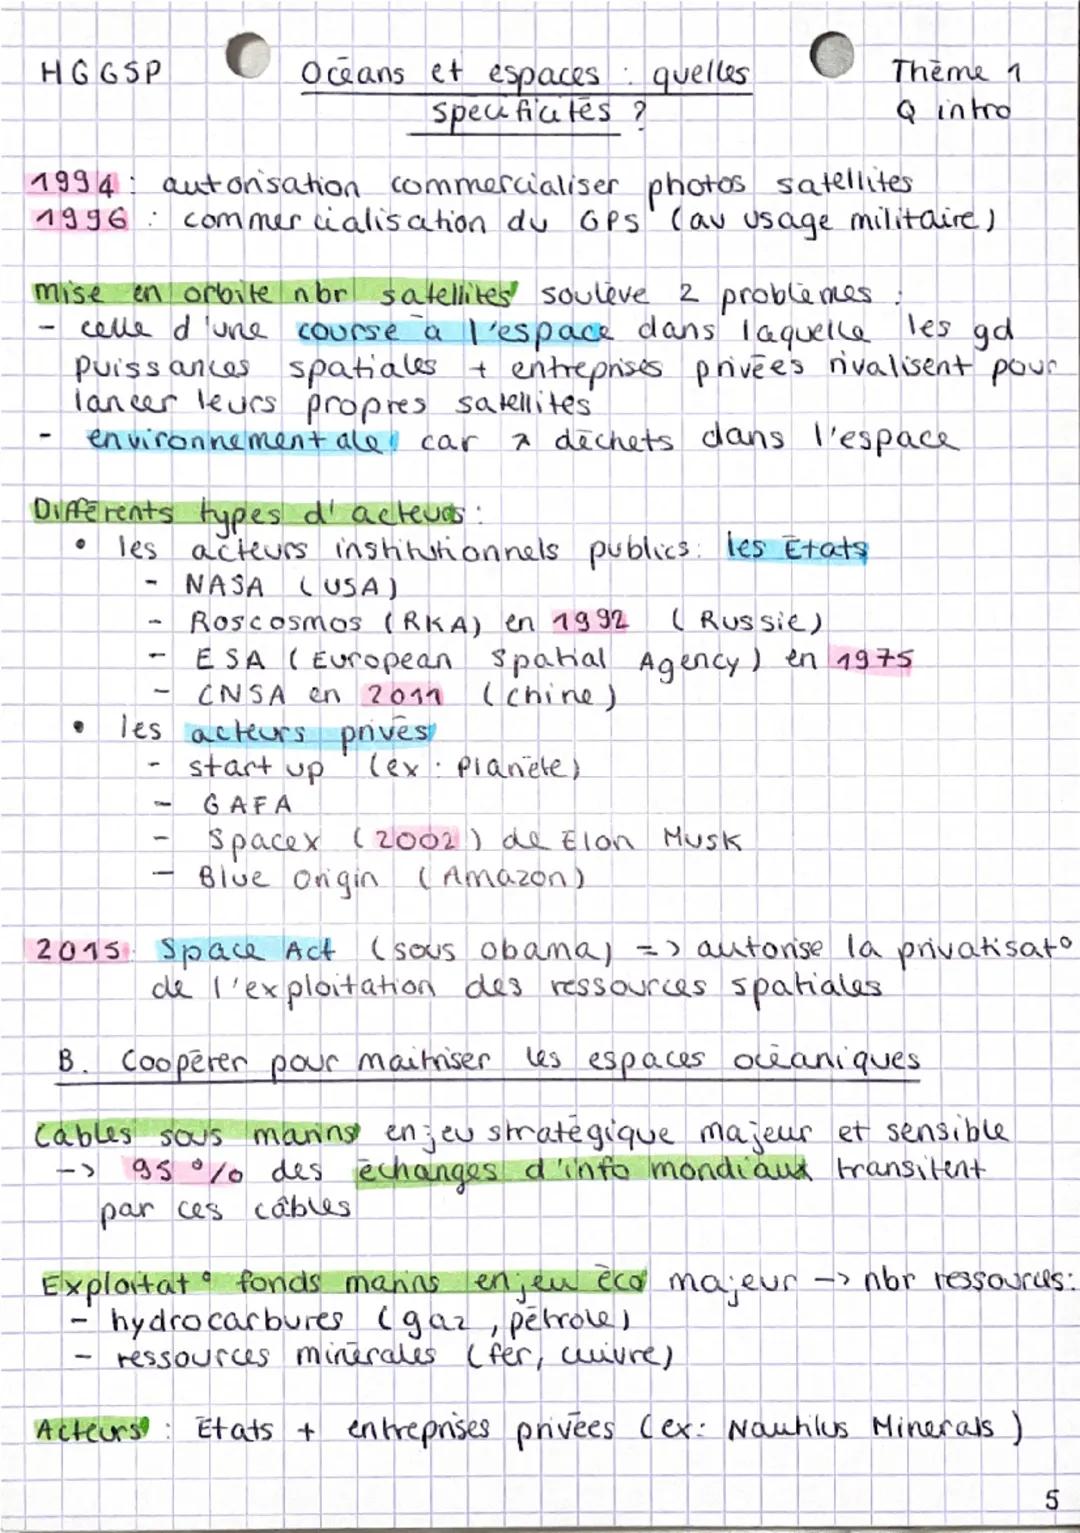 HGGSP
Océans et espaces : quelles
spécificités ?
Thème 1
Q intro
1994 : autorisation commercialiser photos satellites
1996 : commercialisation du GPS (av usage militaire)
mise en orbite nbr satellites soulève 2 problèmes :
- celle d'une course à l'espace dans laquelle les gd
puissances spatiales + entreprises privées rivalisent pour
lancer leurs propres satellites
- environnementale car ↗ déchets dans l'espace
Différents types d'acteurs :
• les acteurs institutionnels publics : les États
- NASA (USA)
- Roscosmos (RKA) en 1992 (Russie)
- ESA (European Spatial Agency) en 1975
- CNSA en 2011 (Chine)
• les acteurs privés
- start up (ex : Planète)
- GAFA
- Spacex (2002) de Elon Musk
- Blue Origin (Amazon)
2015 : Space Act (sous Obama) => autorise la privatisat°
de l'exploitation des ressources spatiales
B. Coopérer pour maitriser les espaces océaniques
Cables sous marins enjeu stratégique majeur et sensible
-> 95 % des échanges d'info mondiaux transitent
par ces câbles
Exploitat° fonds marins enjeu éco majeur -> nbr ressources :
- hydrocarbures (gaz, pétrole)
- ressources minérales (fer, cuivre)
Acteurs : États + entreprises privées (ex : Nautilus Minerals)
5